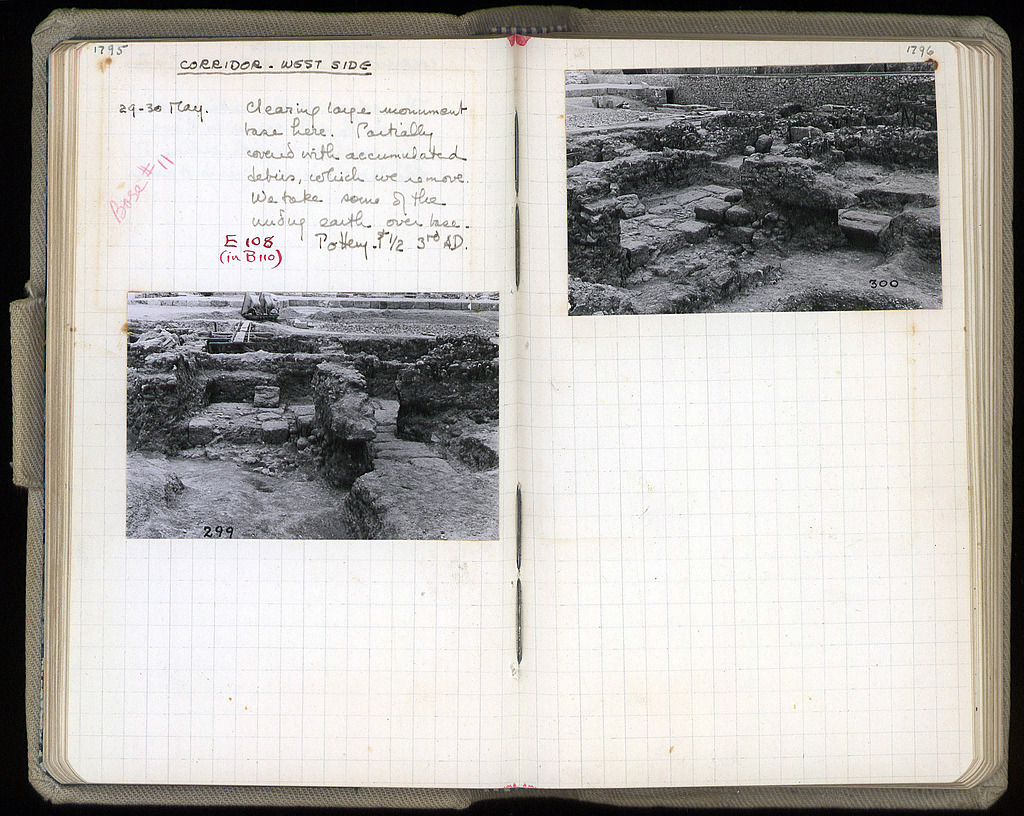 1795
CORRIDOR - WEST SIDE
29-30 May.
Clearing large monument
base here. Partially
covered with accumulated
debris, which we remove.
We take some of the
earth over base.
Base #11
E 108
(in B 110)
Pottery. 1st 1/2 3rd AD.
299
1796
300